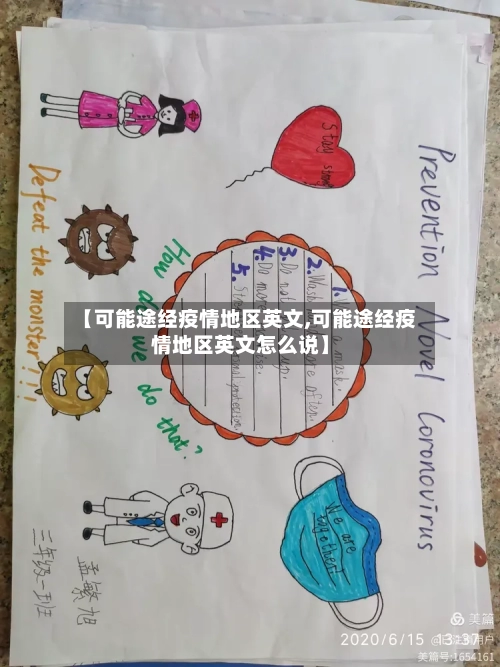 Prevention Novel Coronovirus
Stay strong
How do we do that?
1.
2. Wash more often.
3. Do not
4. Do more
5. Strong personal protection
Defeat the monster!!!
We are
together!
三年级一班
孟繁旭
【可能途经疫情地区英文,可能途经疫
情地区英文怎么说】
美篇
2020/6/15 13:37
用户
美篇号:1654161